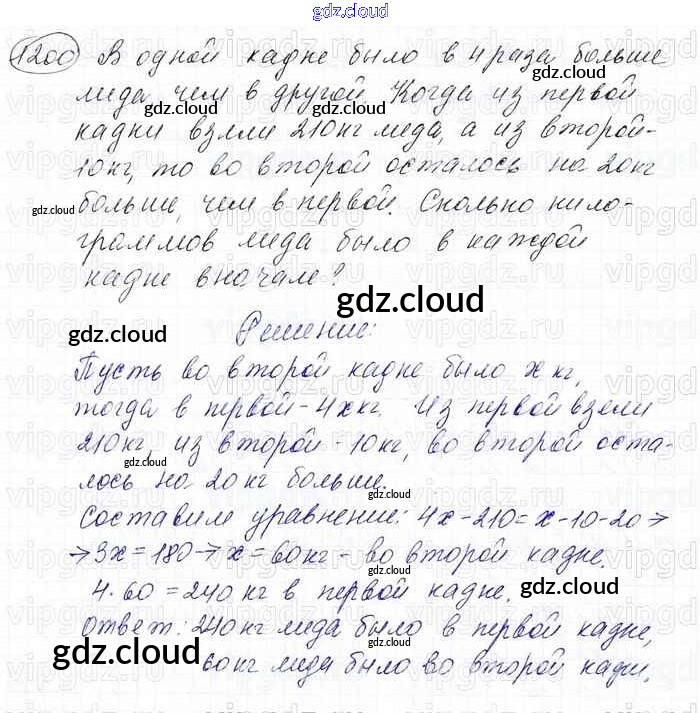 gdz.cloud
1200 В одной кадке было в 4 раза больше
меда, чем в другой. Когда из первой
кадки взяли 210 кг меда, а из второй -
10 кг, то во второй осталось на 20 кг
больше, чем в первой. Сколько кило-
граммов меда было в каждой
кадке вначале?
Решение:
Пусть во второй кадке было x кг,
тогда в первой - 4x кг. Из первой взяли
210 кг, из второй - 10 кг, во второй оста-
лось на 20 кг больше.
Составим уравнение: 4x - 210 = x - 10 - 20 →
→ 3x = 180 → x = 60 кг - во второй кадке.
4 · 60 = 240 кг в первой кадке.
Ответ: 240 кг меда было в первой кадке,
60 кг меда было во второй кадк.